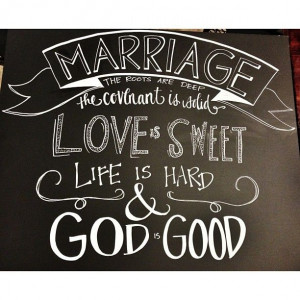 MARRIAGE
THE ROOTS ARE DEEP
the covenant is solid
LOVE is SWEET
LIFE IS HARD
&
GOD is GOOD